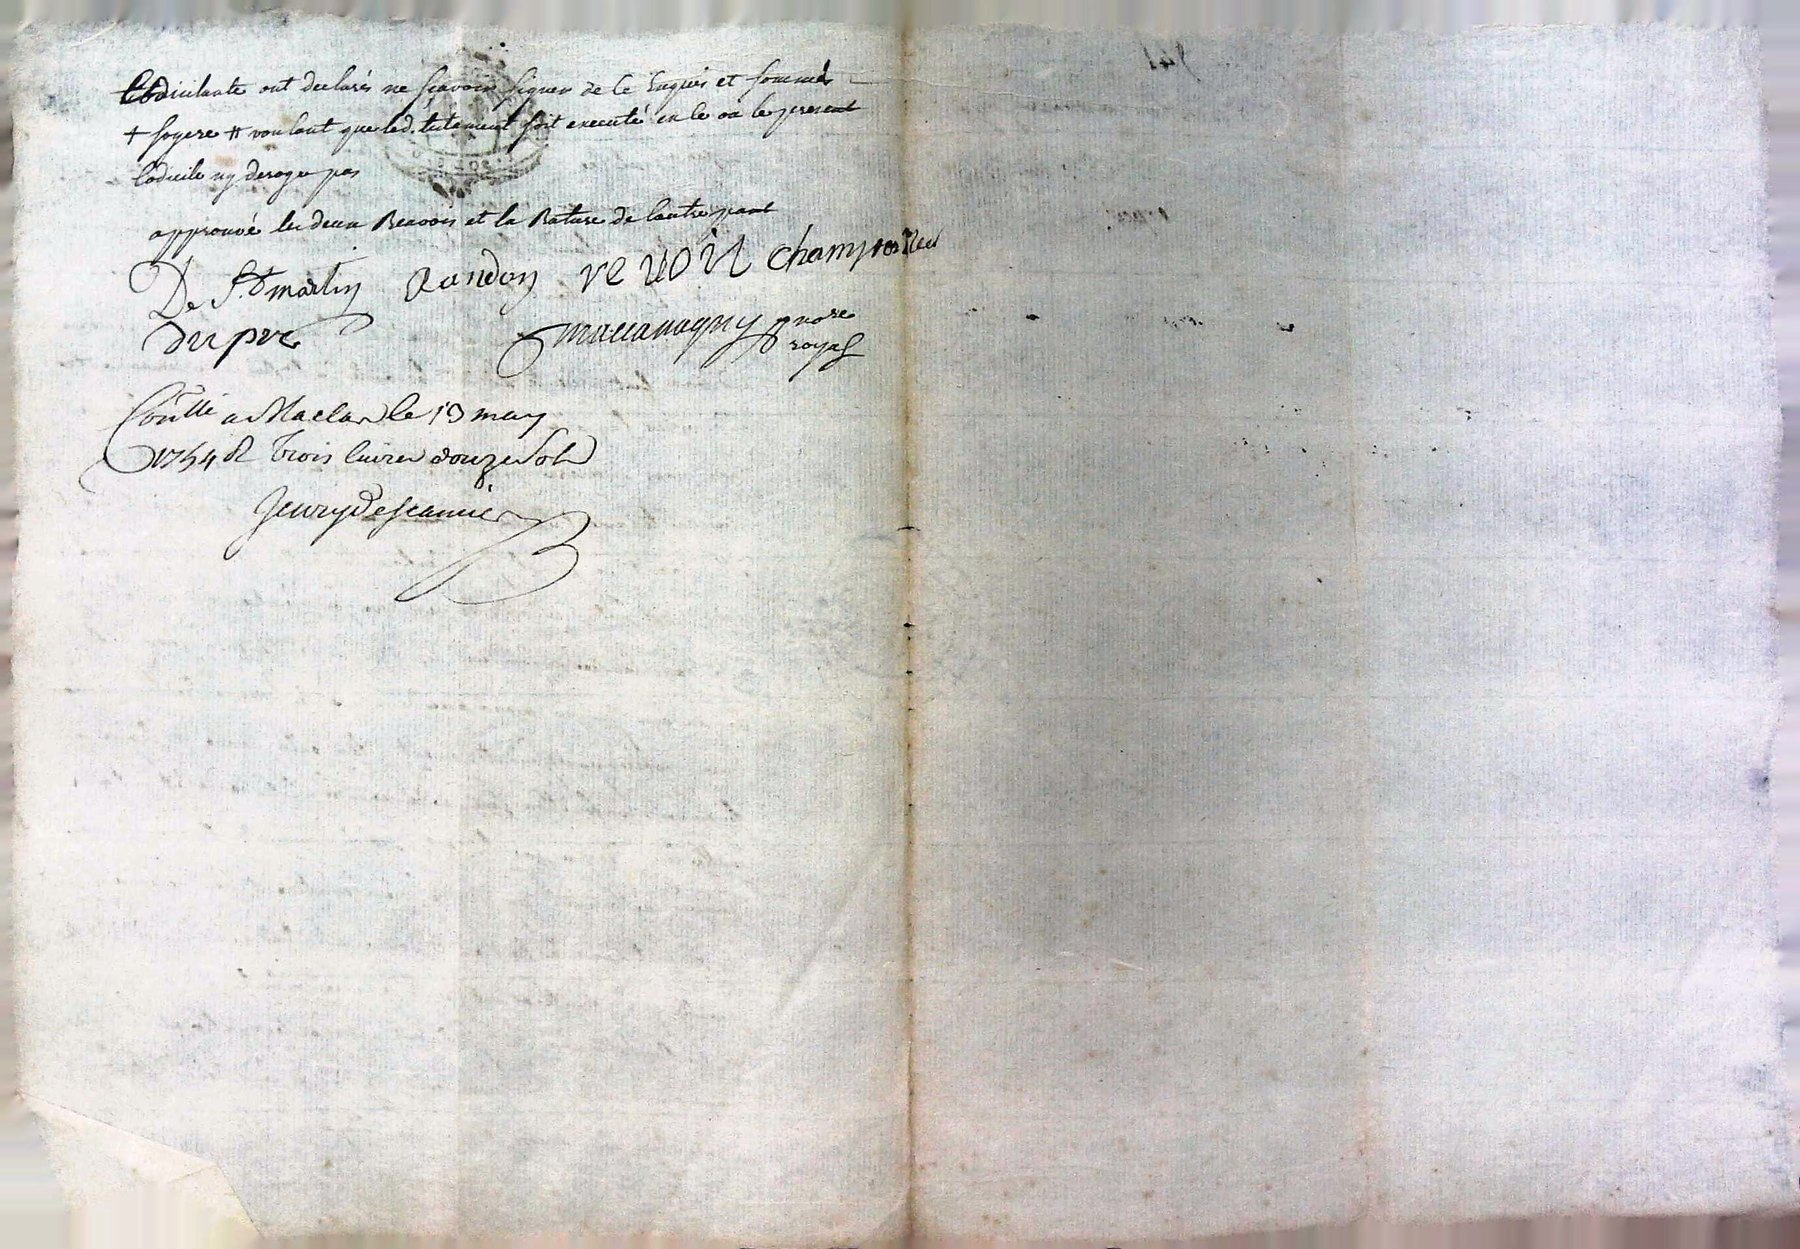 Codicilante ont declarés ne sçavoir signer de ce Enquis et sommés
+ soyere # voulant que led. testament soit executé en ce où le present
Codicile n'y deroge pas
approuvé les deux Renvois et la Rature de l'autre part
De St martin Randon revoil Champ
dupré notre
royal
Conllé a Maclas le 13 may
1754 R trois livres douze sols